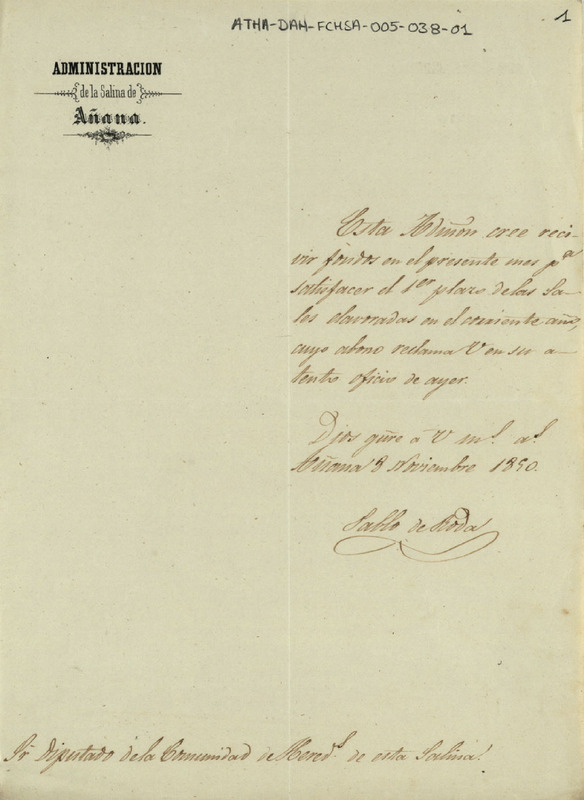 ATHA-DAH-FCHSA-005-038-01
1
ADMINISTRACION
de la Salina de
Añana.
Esta Admon cree reci-
vir fondos en el presente mes pª
satisfacer el 1er plazo de las Sa-
les elavoradas en el corriente año,
cuyo abono reclama V en su a-
tento oficio de ayer.
Dios gũe á V ms. as.
Añana 8 Noviembre 1850.
Pablo de Roda
Sr Diputado de la Comunidad de Hereds. de esta Salina.